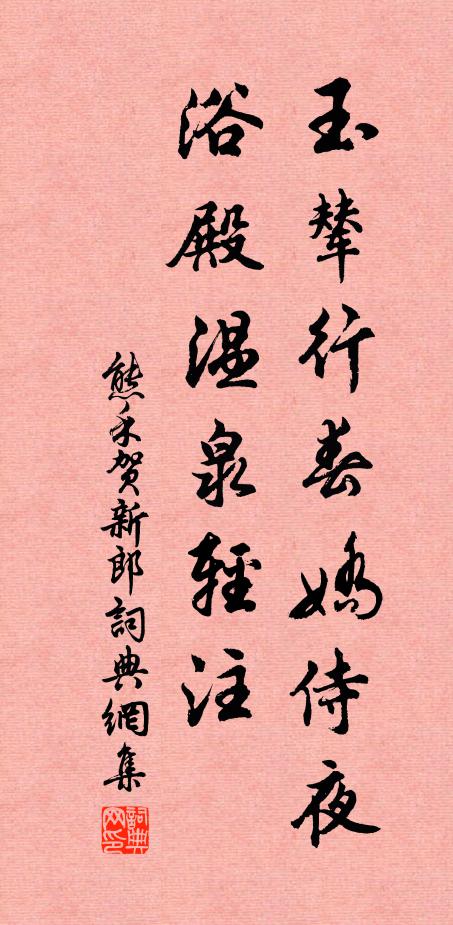 玉輦行春嬌侍夜
浴殿溫泉輕注
熊禾賀新郎詞典網集
詞典網印